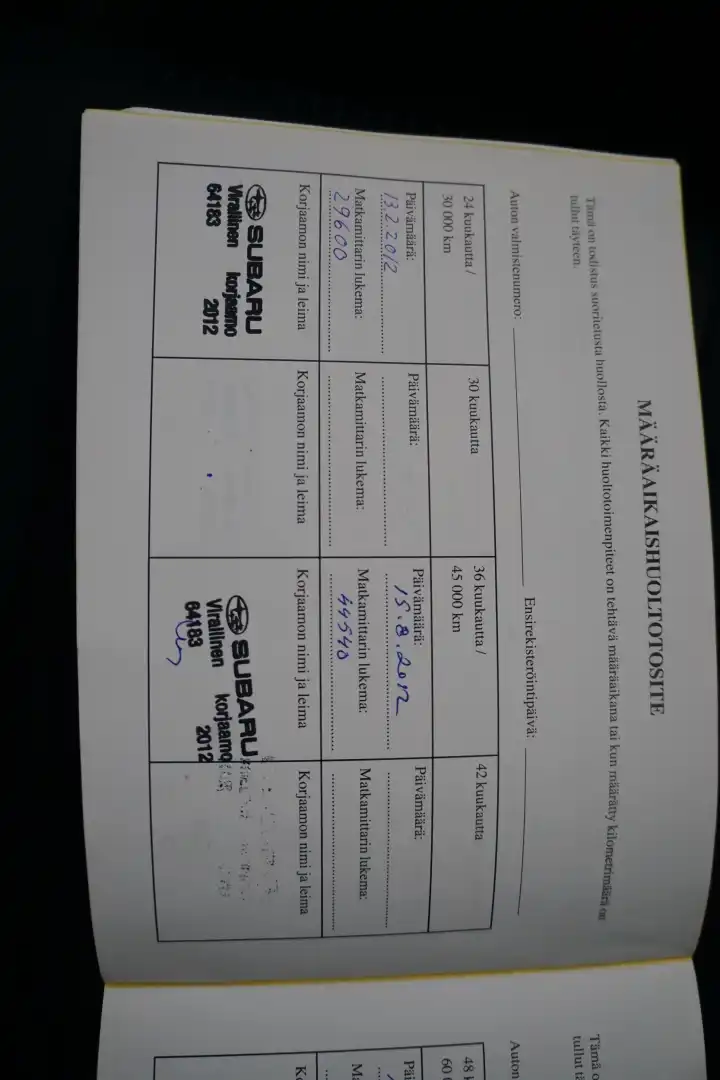 MÄÄRÄAIKAISHUOLTOTOSITE
Tämä on todistus suoritetusta huollosta. Kaikki huoltotoimenpiteet on tehtävä määräaikana tai kun määrätty kilometrimäärä on
tullut täyteen.
Auton valmistenumero:
Ensirekisteröintipäivä:
24 kuukautta /
30 000 km
Päivämäärä:
13.2.2012
Matkamittarin lukema:
29600
Korjaamon nimi ja leima
SUBARU
Virallinen korjaamo
64183 2012
30 kuukautta
Päivämäärä:
Matkamittarin lukema:
Korjaamon nimi ja leima
36 kuukautta /
45 000 km
Päivämäärä:
15.8.2012
Matkamittarin lukema:
44540
Korjaamon nimi ja leima
SUBARU
Virallinen korjaamo
64183 2012
42 kuukautta
Päivämäärä:
Matkamittarin lukema:
Korjaamon nimi ja leima
Tämä o
tullut tä
Auton
48 k
60 0
Päi
Ma
Ko